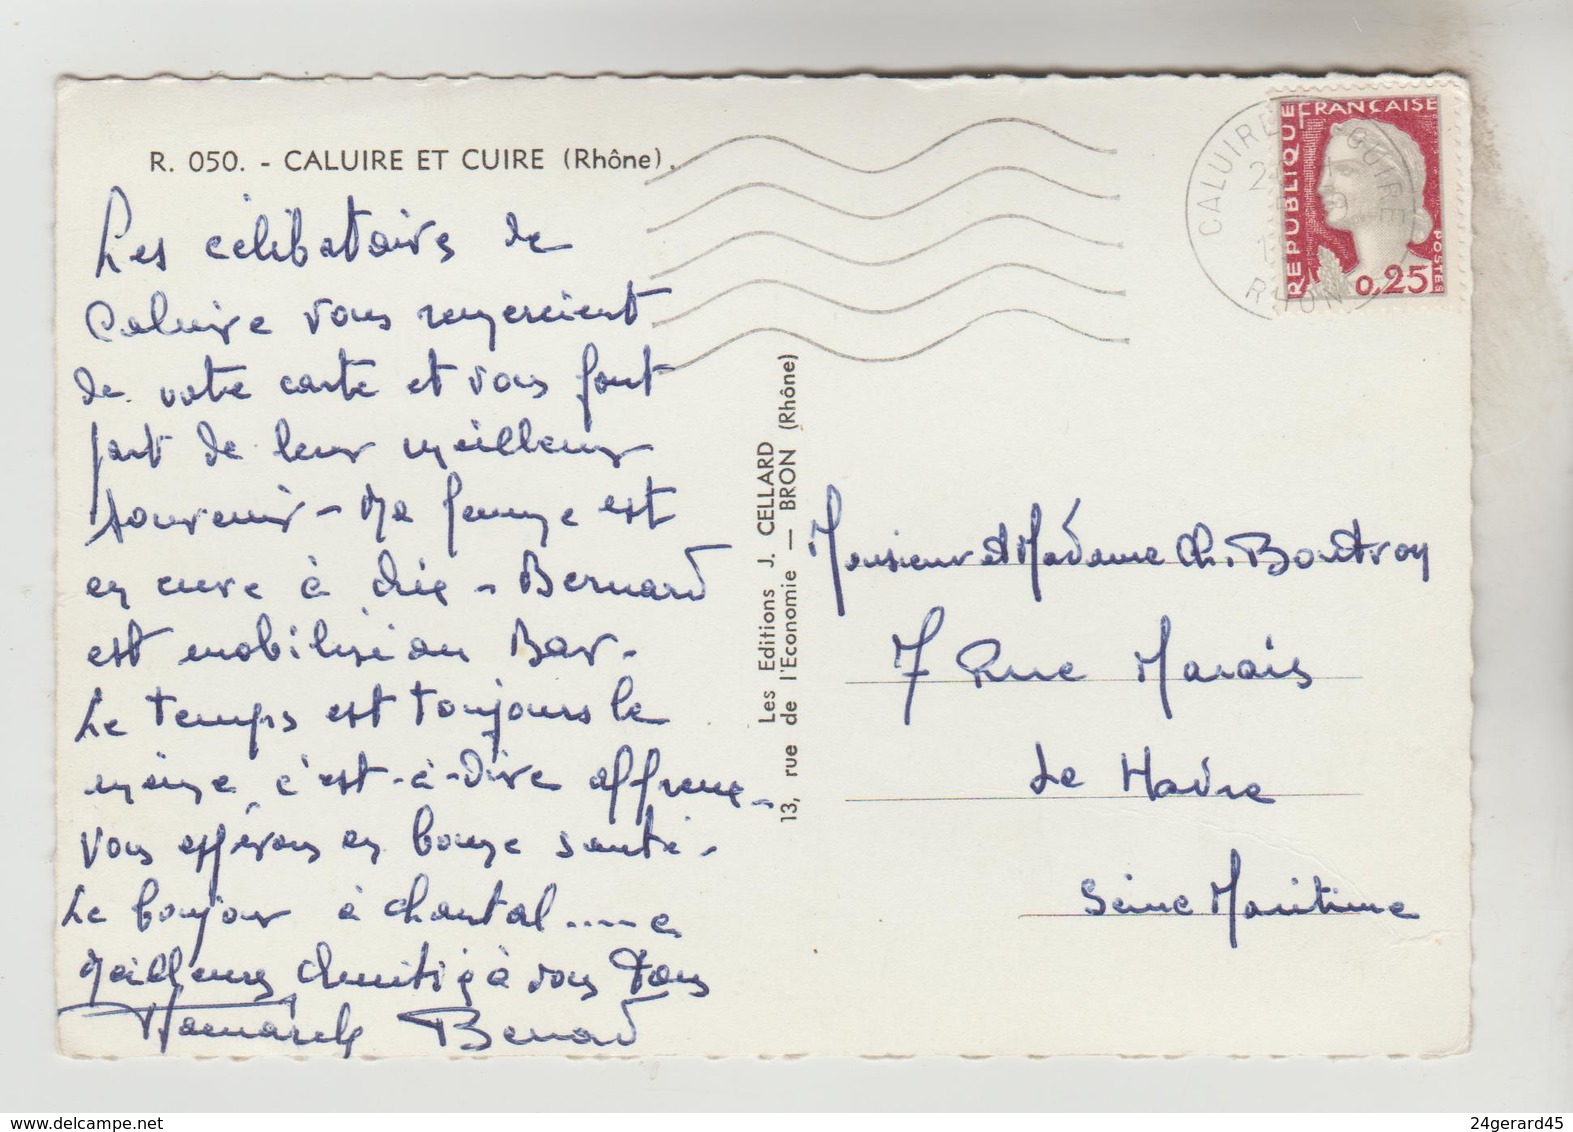 R. 050. - CALUIRE ET CUIRE (Rhône).
Les célibataires de
Caluire vous remercient
de votre carte et vous font
part de leur meilleur
souvenir - Ma femme est
en cure à Aix - Bernard
est mobilisé au Bar -
Le temps est toujours le
même c'est-à-dire affreux -
Vous espérons en bonne santé -
Le bonjour à Chantal .... et
meilleures amitiés à vous tous
Bernard
Les Editions J. CELLARD
13, rue de l'Economie — BRON (Rhône)
CALUIRE ET CUIRE
RHONE
REPUBLIQUE FRANÇAISE
POSTES
0,25
Monsieur et Madame Ch. Boutroy
7 Rue Marais
Le Havre
Seine Maritime
24gerard45